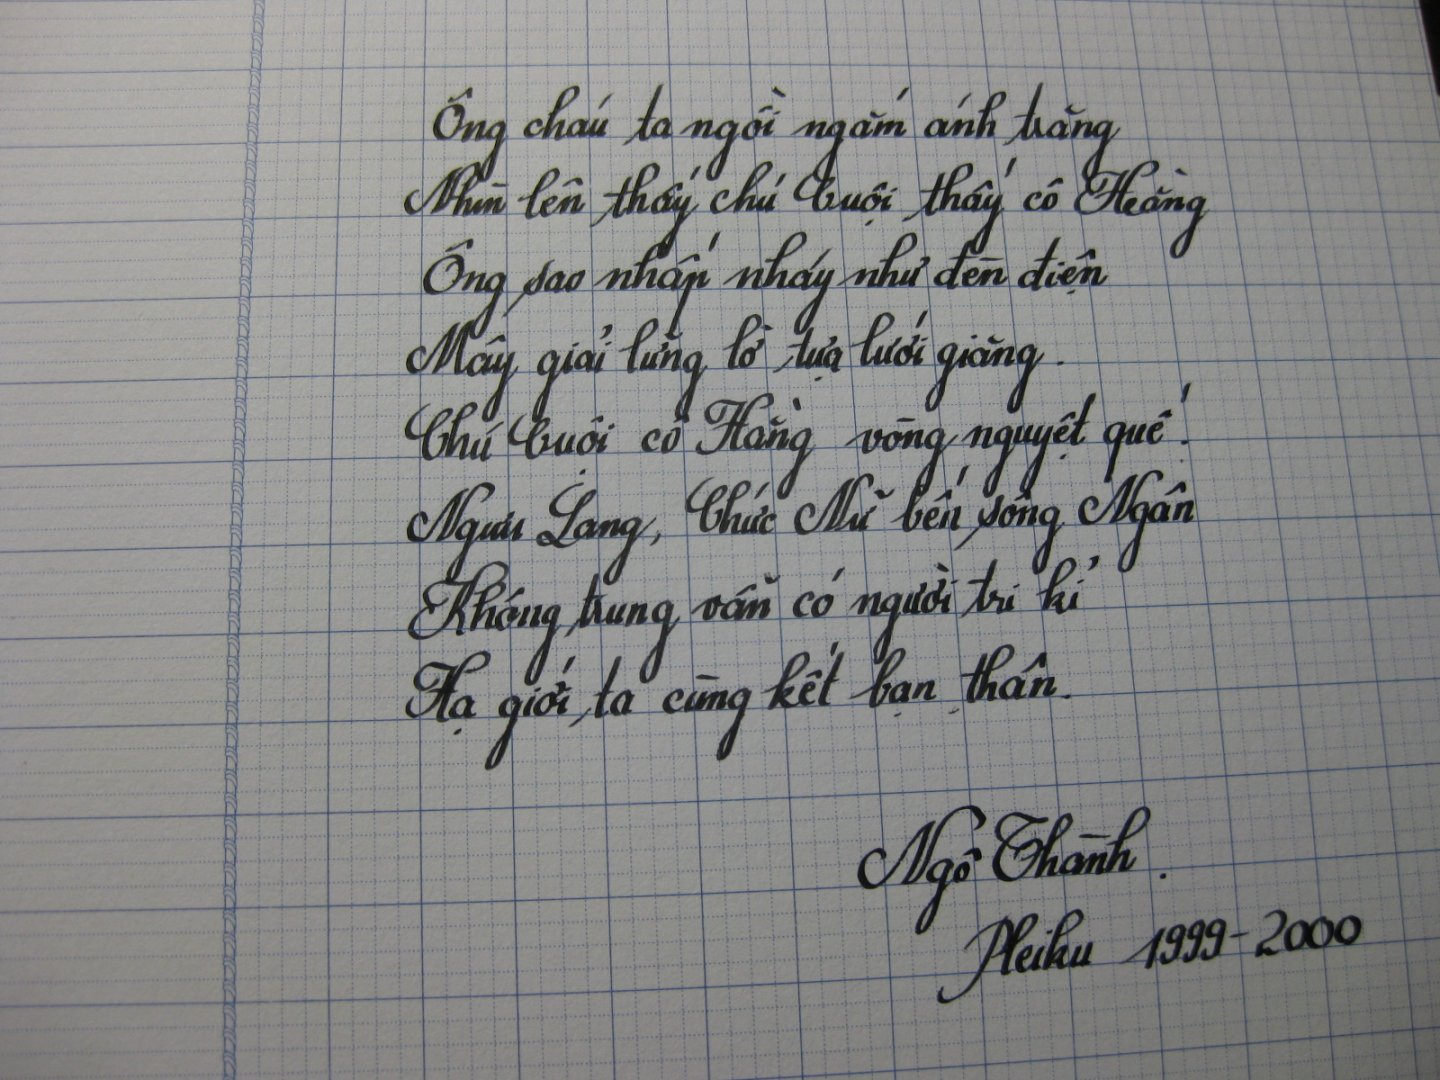 Ông cháu ta ngồi ngắm ánh trăng
Nhìn lên thấy chú Cuội thấy cô Hằng
Ông sao nhấp nháy như đèn điện
Mây giải lững lờ tựa lưới giăng.
Chú Cuội cô Hằng vòng nguyệt quế.
Ngưu Lang, Chức Nữ bến sông Ngân
Không trung vẫn có người tri kỉ
Hạ giới ta cùng kết bạn thân.
Ngô Thành.
Pleiku 1999-2000